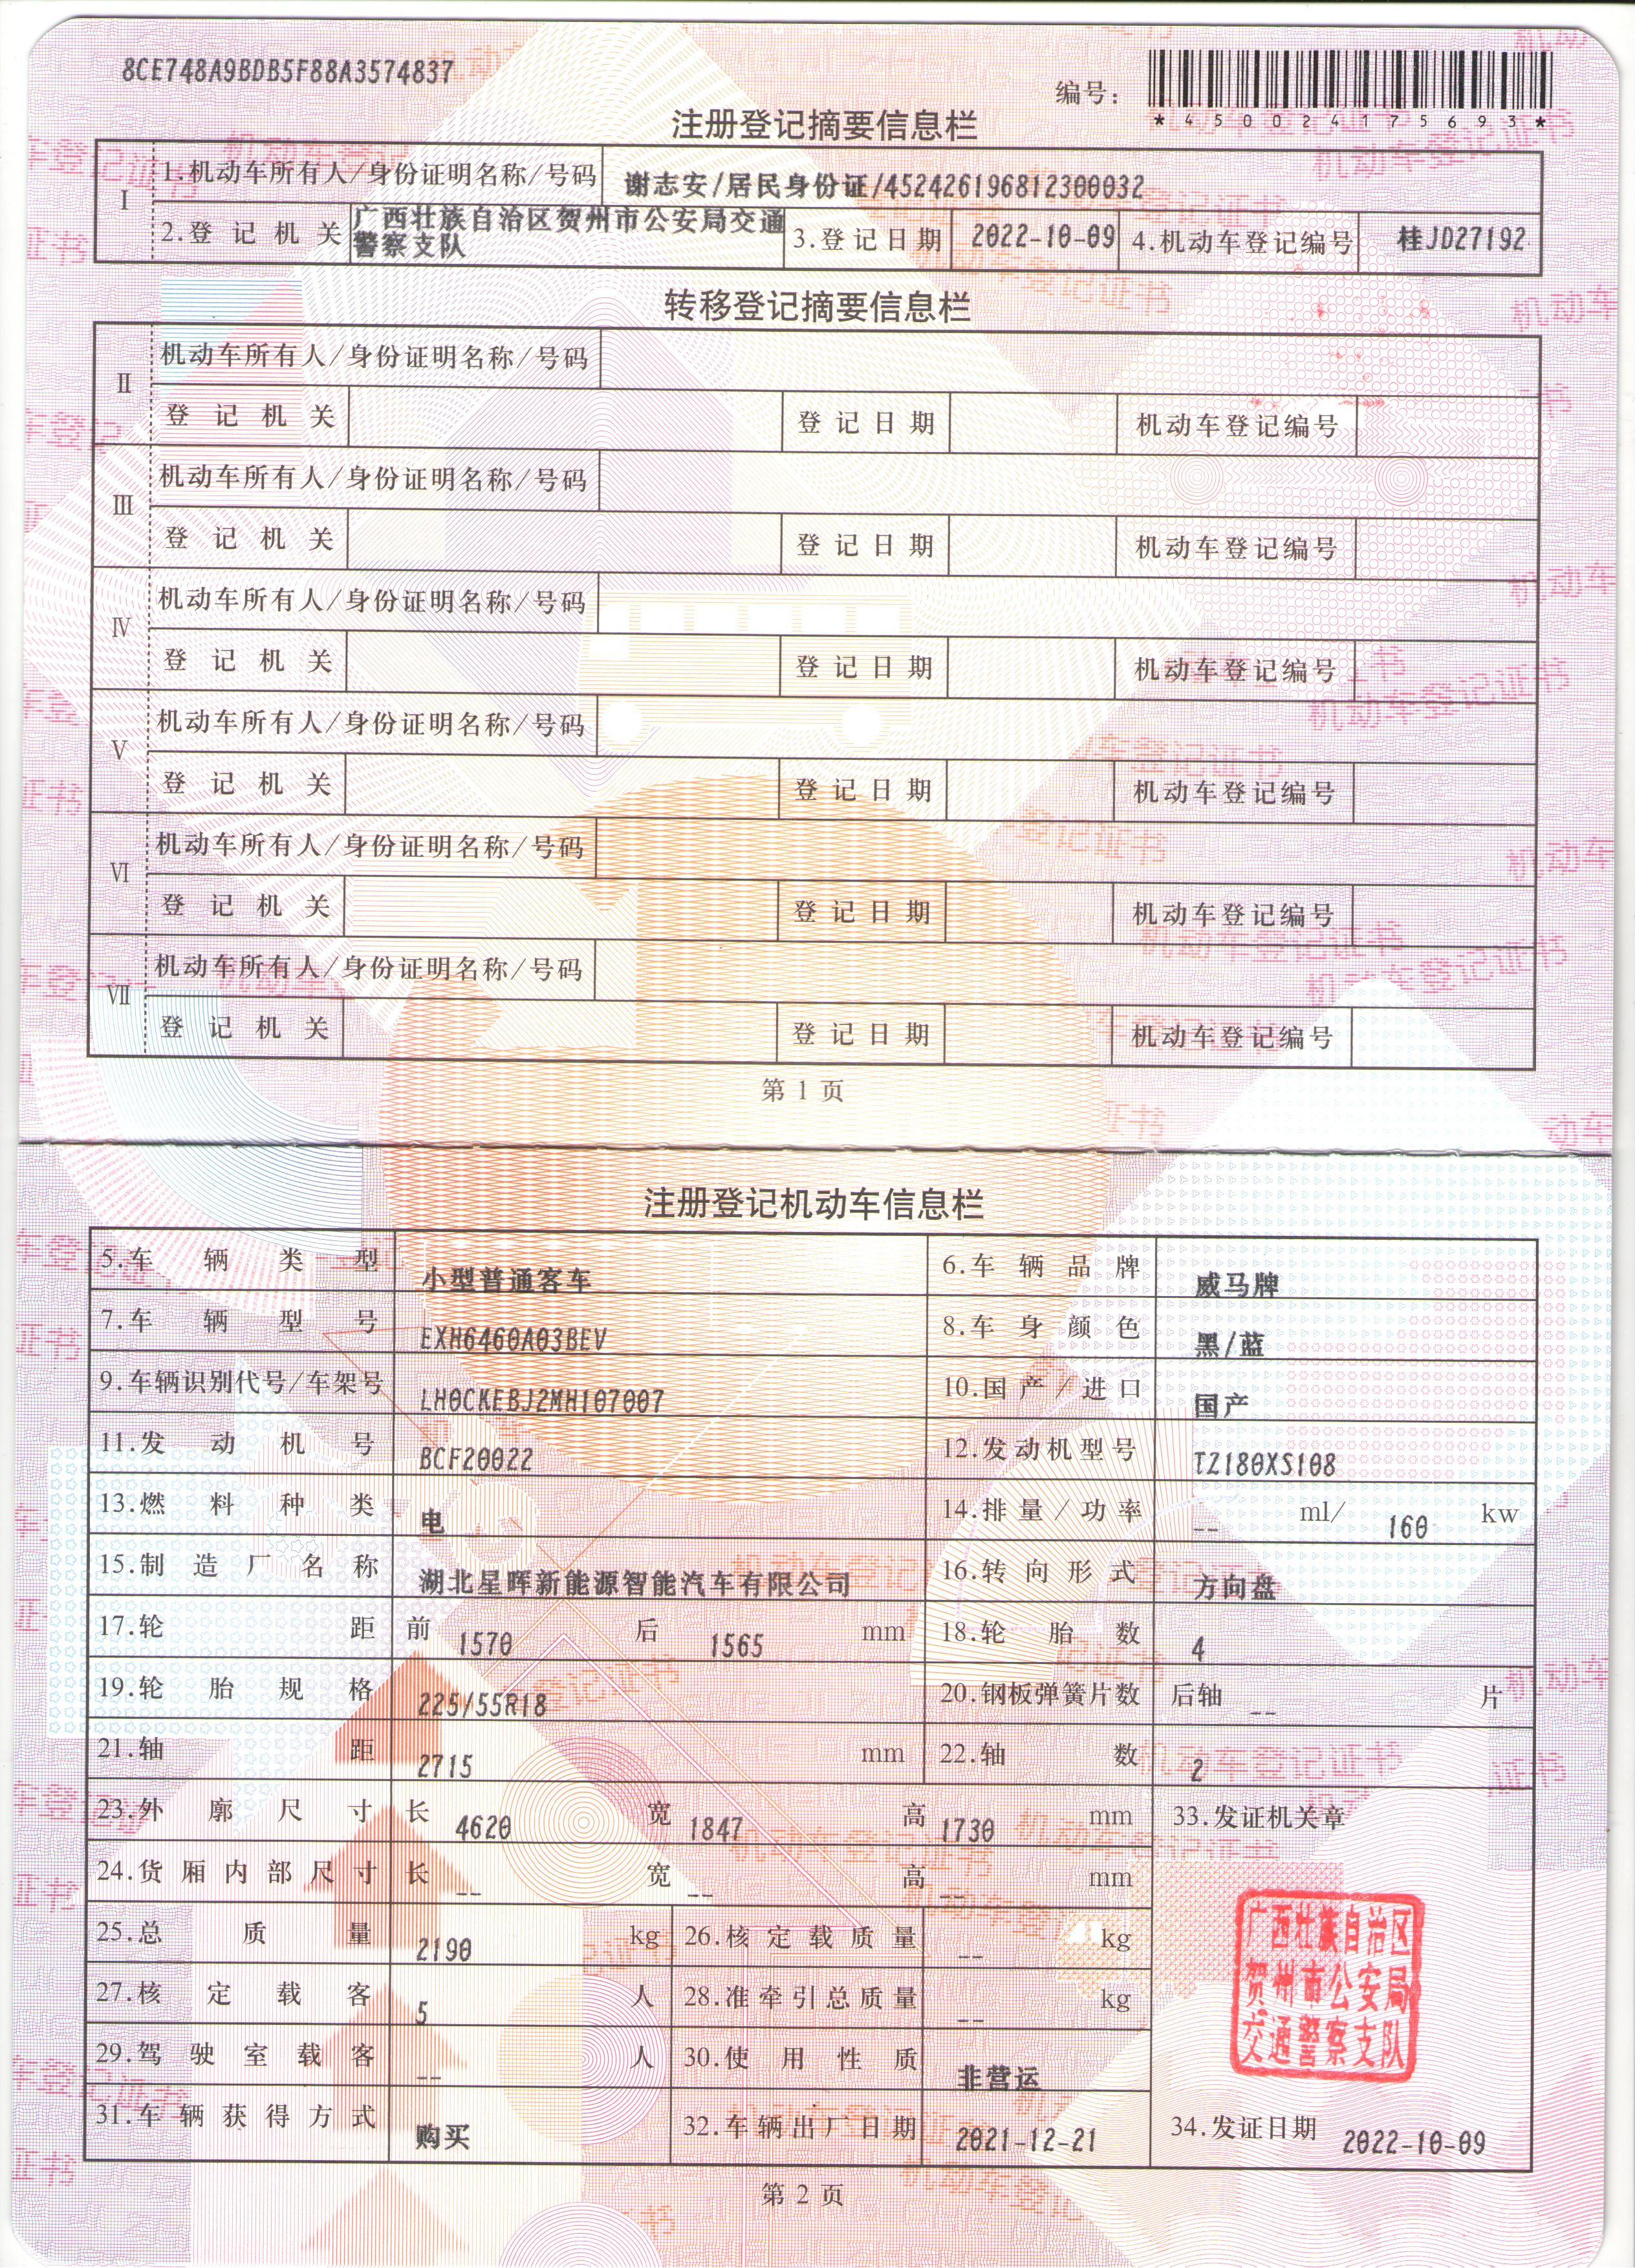 8CE748A9BDB5F88A3574837
编号：
*450024175693*
注册登记摘要信息栏
I
1.机动车所有人/身份证明名称/号码 谢志安/居民身份证/452426196812300032
2.登记机关 广西壮族自治区贺州市公安局交通警察支队 3.登记日期 2022-10-09 4.机动车登记编号 桂JD27192
转移登记摘要信息栏
II
机动车所有人/身份证明名称/号码
登记机关 登记日期 机动车登记编号
III
机动车所有人/身份证明名称/号码
登记机关 登记日期 机动车登记编号
IV
机动车所有人/身份证明名称/号码
登记机关 登记日期 机动车登记编号
V
机动车所有人/身份证明名称/号码
登记机关 登记日期 机动车登记编号
VI
机动车所有人/身份证明名称/号码
登记机关 登记日期 机动车登记编号
VII
机动车所有人/身份证明名称/号码
登记机关 登记日期 机动车登记编号
第 1 页
注册登记机动车信息栏
5.车辆类型 小型普通客车 6.车辆品牌 威马牌
7.车辆型号 EXH6460A03BEV 8.车身颜色 黑/蓝
9.车辆识别代号/车架号 LH0CKEBJ2MH107007 10.国产/进口 国产
11.发动机号 BCF20022 12.发动机型号 TZ180XS108
13.燃料种类 电 14.排量/功率 -- ml/ 160 kw
15.制造厂名称 湖北星晖新能源智能汽车有限公司 16.转向形式 方向盘
17.轮距 前 1570 后 1565 mm 18.轮胎数 4
19.轮胎规格 225/55R18 20.钢板弹簧片数 后轴 -- 片
21.轴距 2715 mm 22.轴数 2
23.外廓尺寸 长 4620 宽 1847 高 1730 mm 33.发证机关章
24.货厢内部尺寸 长 -- 宽 -- 高 -- mm
25.总质量 2190 kg 26.核定载质量 -- kg
27.核定载客 5 人 28.准牵引总质量 -- kg
29.驾驶室载客 -- 人 30.使用性质 非营运
31.车辆获得方式 购买 32.车辆出厂日期 2021-12-21 34.发证日期 2022-10-09
广西壮族自治区
贺州市公安局
交通警察支队
第 2 页